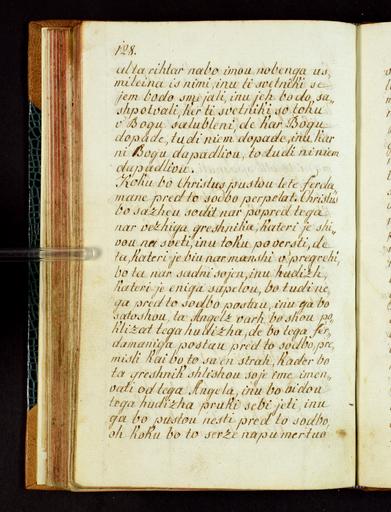 128.
al ta rihtar nabo imou nobenga us,
mileina is nimi, inu ti svetniki se
jem bodo smejali, inu jeh bodo sa,
shpotvali, ker ti svetniki so toku
v Bogu salubleni, de kar Bogu
dopade, tudi niem dopade, inu kar
ni Bogu dapadliou, to tudi ni niem
dapadliou.
Koku bo Christus pustou lete ferda,
mane pred to sodbo perpelat. Christus
bo sazheu sodit nar popred tega
nar vezhiga greshnika, kateri je shi,
vou na sveti, inu toku poversti, de
ta, kateri je biu nar manshi v pregrehi,
bo ta nar sadni sojen, inu hudizh,
kateri je eniga sapelou, bo tudi ne,
ga pred to sodbo postau, inu ga bo
satoshou, ta Angelz varh bo shou po
klizat tega hudizha, de bo tega fer,
damaniga postau pred to sodbo, pre,
misli kai bo to sa en strah, kader bo
ta greshnik shlishou soje ime imen,
vati od tega Angela, inu bo bidou
tega hudizha pruki sebi jeti, inu
ga bo pustou nesti pred to sodbo,
oh koku bo to serze napu mertuo